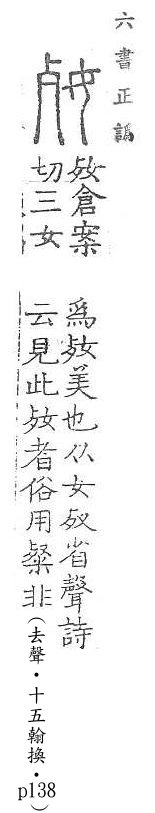 六書正譌
㛑倉案
切三女
爲㛑美也从女𣦻省聲詩
云見此㛑者俗用粲非(去聲・十五翰換・p138)